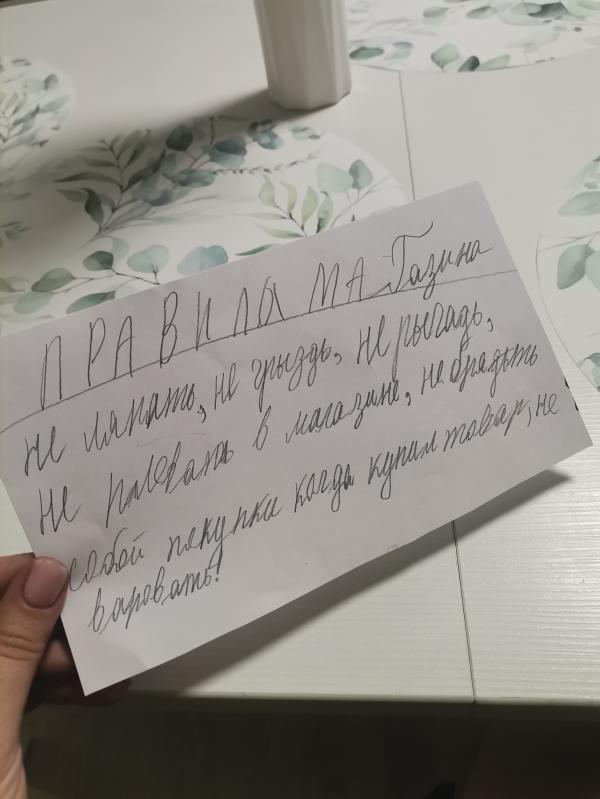 ПРАВИЛА МА Газина
не ляпать, не грыздь, не рыгадь,
не плевать в магазине, не брадьть
собой пакупки когда купил товар, не
варовать!